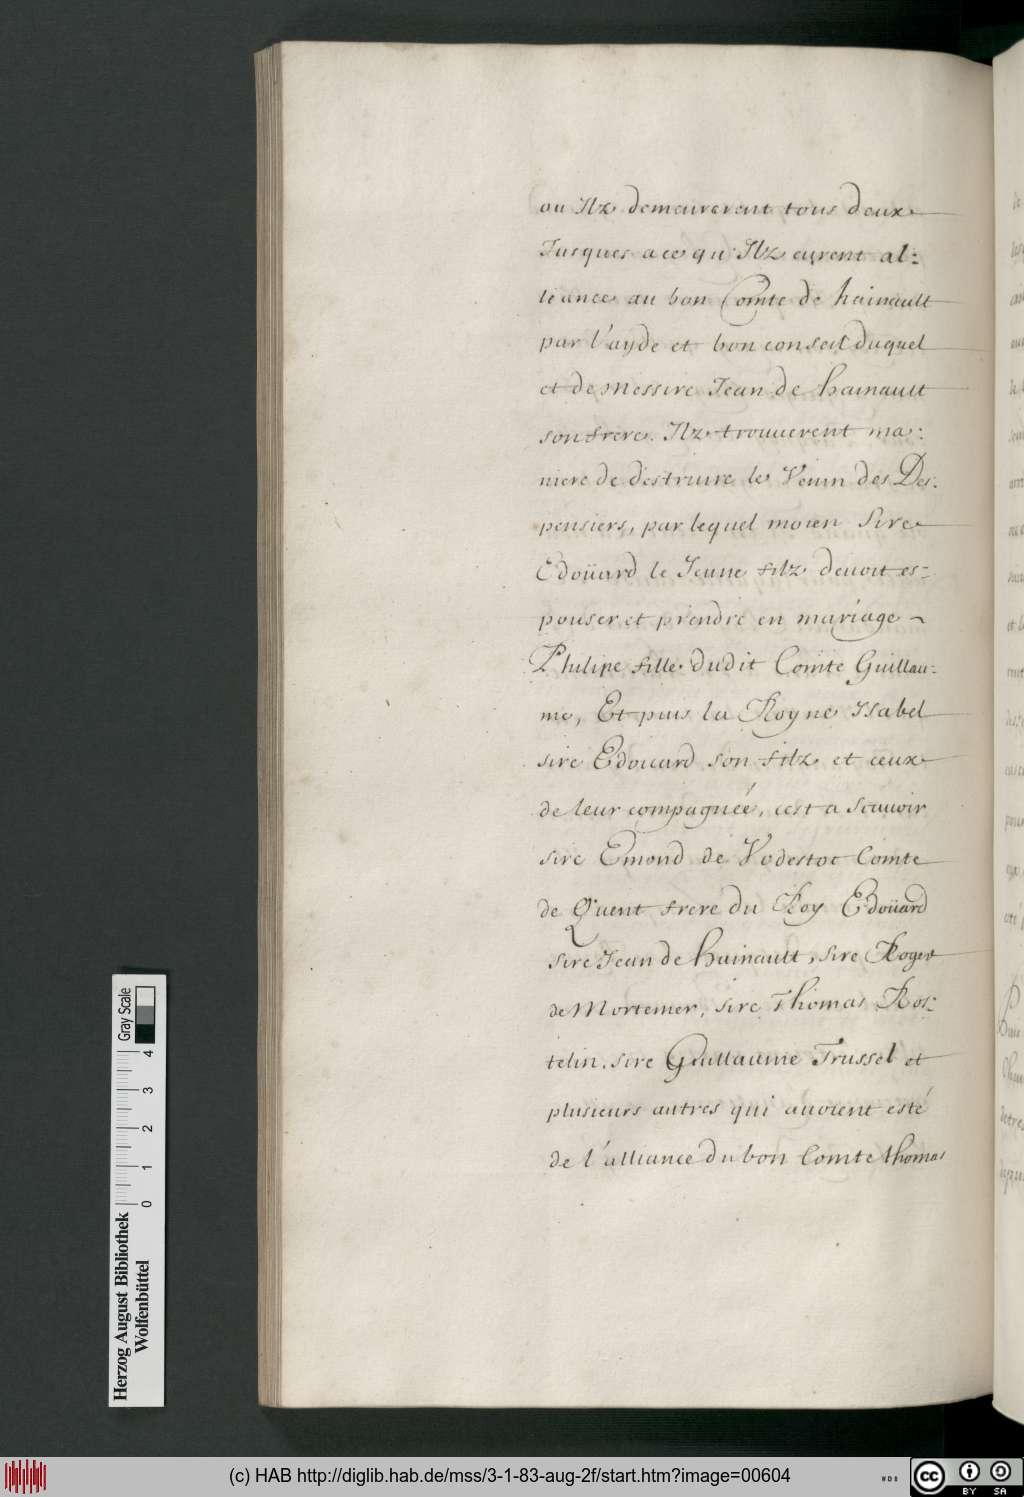 ou Ilz demeurerent tous deux
Jusques a ce qu'Ilz eurent al:
leance au bon Comte de hainault
par l'ayde et bon conseil duquel
et de Messire Jean de hainault
son frere. Ilz trouuerent ma:
niere de destruire le Venin des Des:
pensiers, par lequel moien Sire
Edoüard le Jeune filz deuoit es=
pouser et prendre en mariage ~
Philipe fille dudit Comte Guillau:
me, Et puis la Royne Isabel
sire Edouard son filz et ceux
de leur compagnéé, cest a Scauoir
sire Emond de Vodestoc Comte
de Quent frere du Roy Edoüard
sire Jean de hainault, sire Roger
de Mortemer, sire Thomas Ros:
telin. sire Guillaume Trussel et
plusieurs autres qui auoient esté
de l'alliance du bon Comte thomas
Gray Scale
4 3 2 1 0
Herzog August Bibliothek
Wolfenbüttel
(c) HAB http://diglib.hab.de/mss/3-1-83-aug-2f/start.htm?image=00604
WDB
cc BY SA